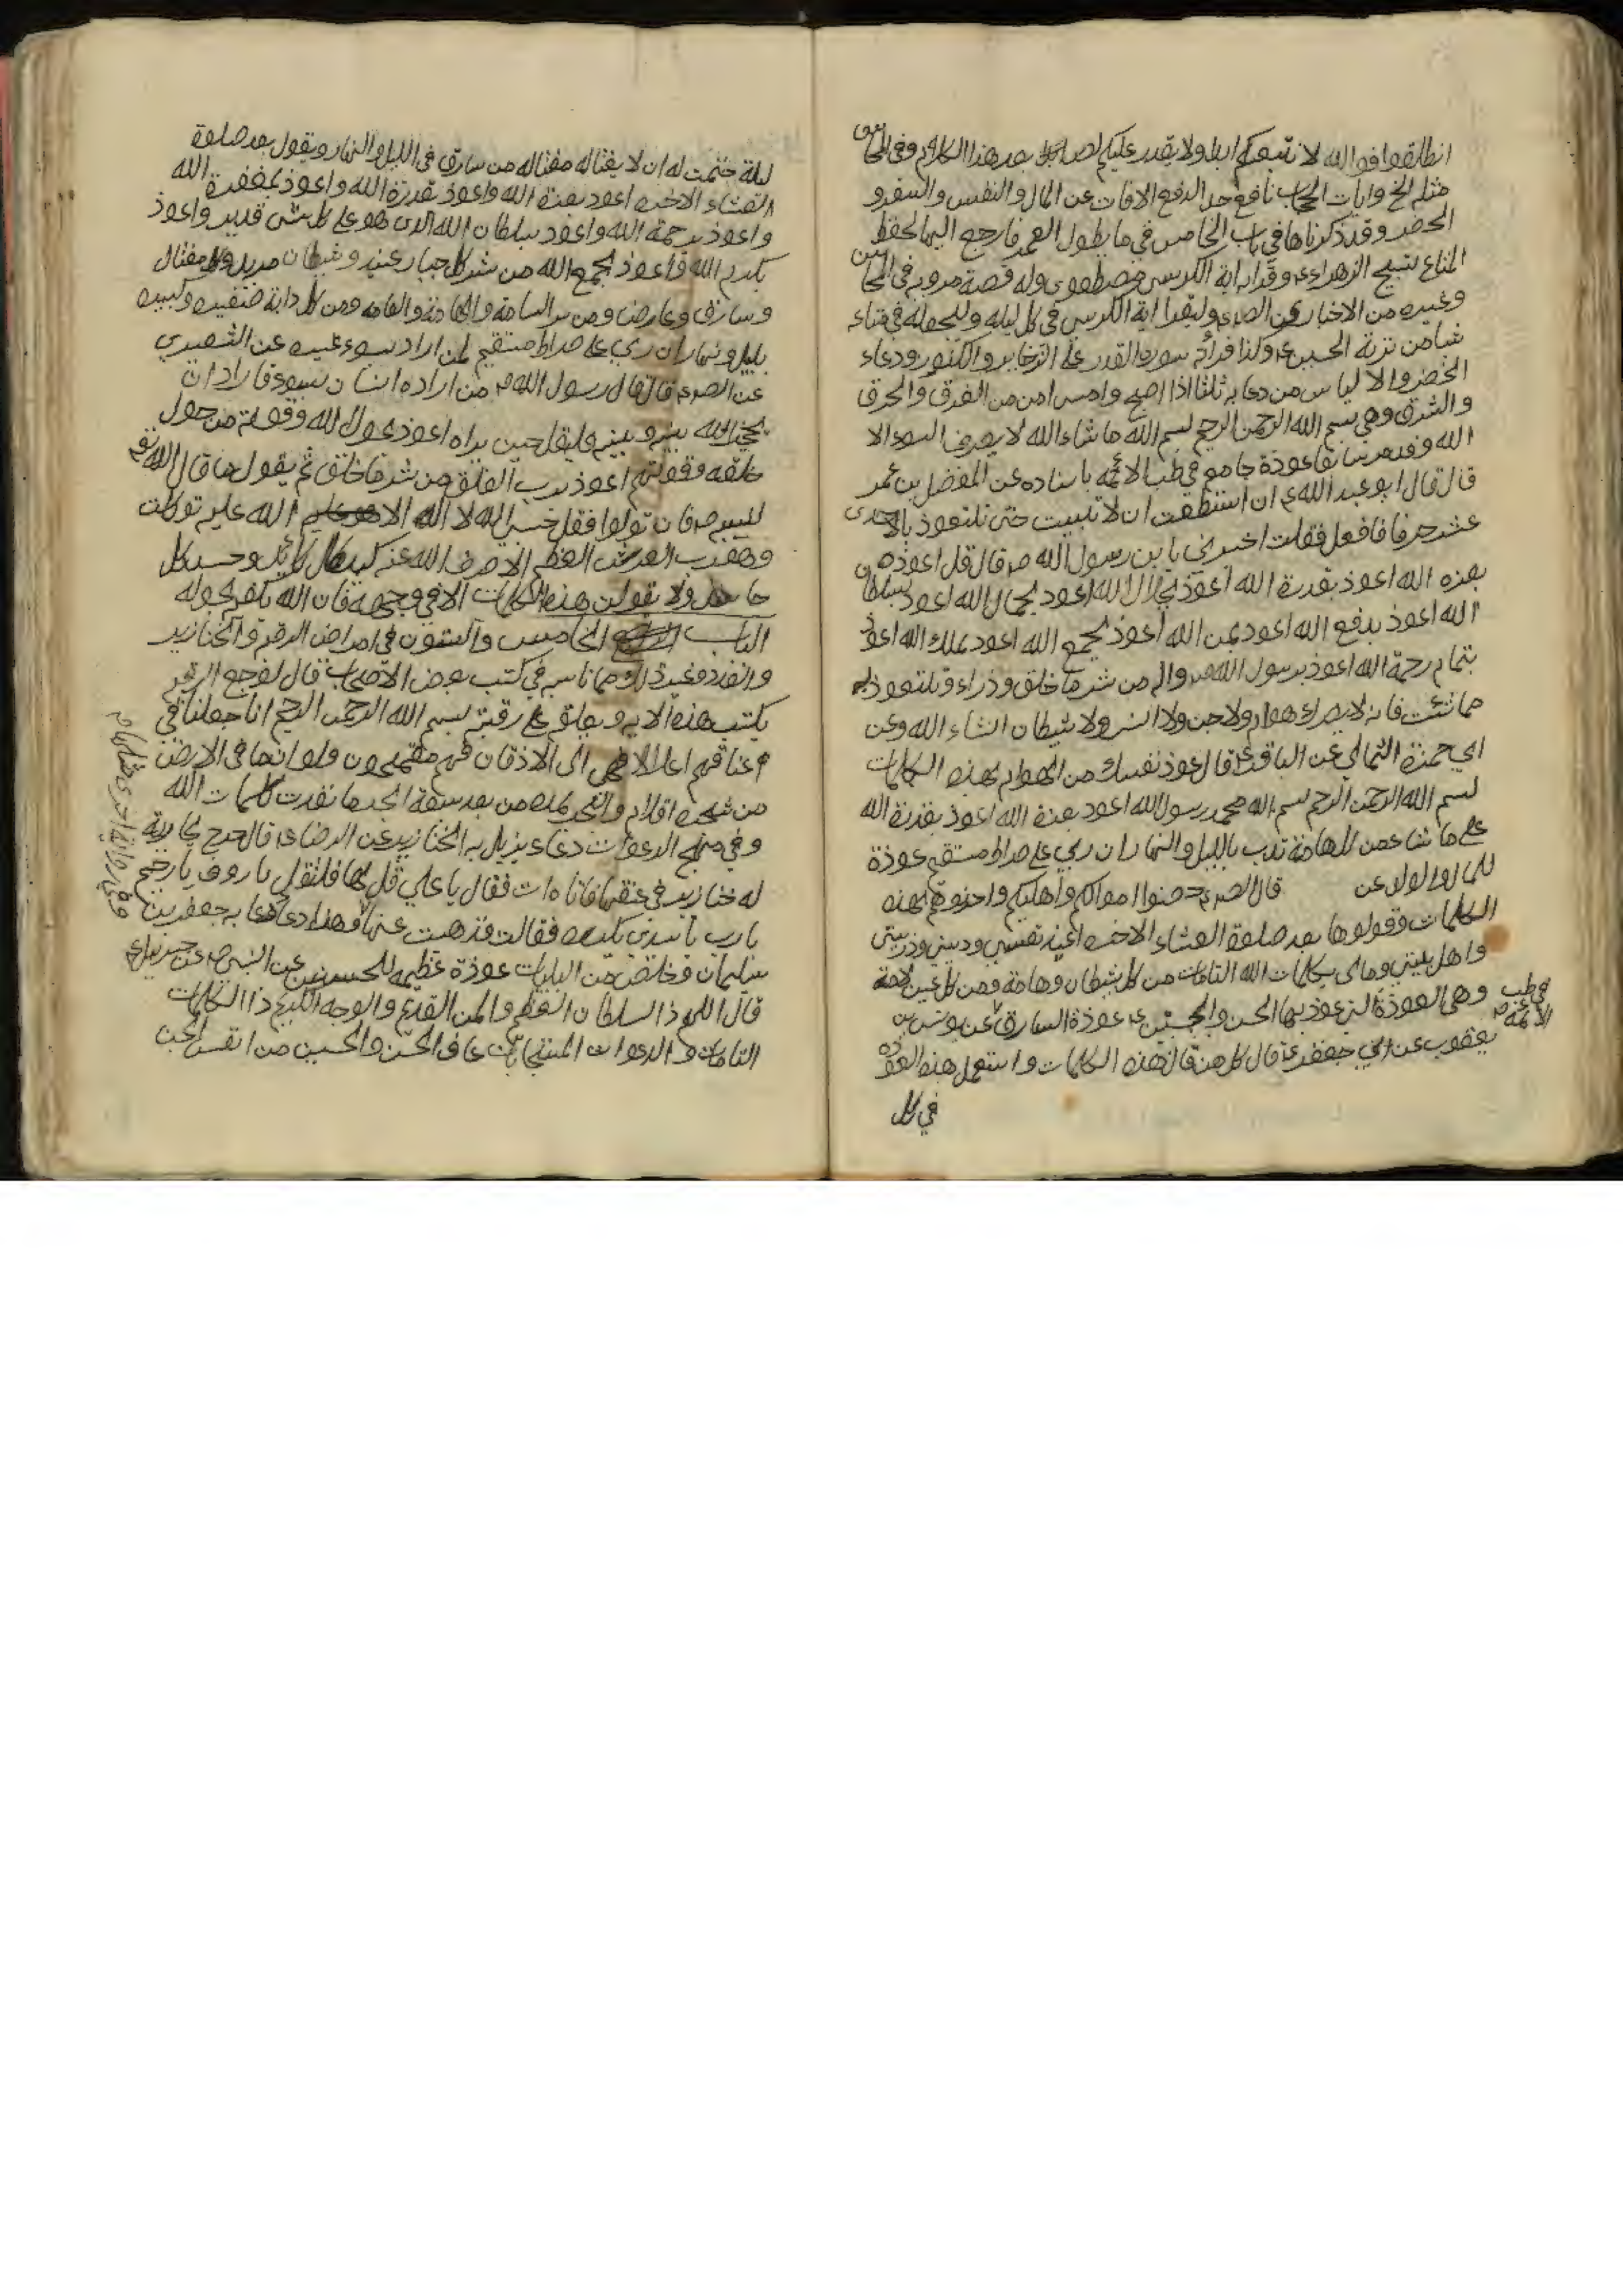 انطلقوا فوالله لا نتبعكم ابدا ولا يقدر عليكم لص بعد هذا الكلام وفي المحاسن
مثله الخ وايات الحجاب نافع جدا لدفع الافات عن المال والنفس والسفر و
الحضر وقد ذكرناها في باب الخامس في ما يطول العمر فارجع اليها لحفظ
المتاع تسبيح الزهراء ع وقراءة اية الكرسي وله قصة مروية في المحاسن
وغيره من الاخبار وعن الصادق وليقرا اية الكرسي في كل ليلة وليجعله في متاعه
شيئا من تربة الحسين ع وكذا قرائة سورة القدر على الذخاير والكنوز ودعاء
الخضر والالياس من دعا به ثلثا اذا اصبح وامسى امن من الغرق والحرق
والشرق وهي بسم الله الرحمن الرحيم بسم الله ما شاء الله لا يصرف السوء الا
الله وقد مر سابقا عوذة جامع في طب الائمة باسناده عن المفضل بن عمر
قال قال ابو عبد الله ع ان استطعت ان لا تبيت حتى تتعوذ بالاحدى
عشر حرفا فافعل فقلت اخبرني يا بن رسول الله ص قال قل اعوذ
بعزة الله اعوذ بقدرة الله اعوذ بجلال الله اعوذ بجمال الله اعوذ بسلطان
الله اعوذ بدفع الله اعوذ بمن الله اعوذ بجمع الله اعوذ بملك الله اعوذ
بتمام رحمة الله اعوذ برسول الله ص واله من شر ما خلق وذراء وتتعوذ به
مما شئت فانه لا يضرك هوام ولا جن ولا انس ولا شيطان انشاء الله وعن
ابي حمزة الثمالي عن الباقر ع قال عوذ نفسك من الهوام بهذه الكلمات
بسم الله الرحمن الرحيم بسم الله محمد رسول الله اعوذ بعزة الله اعوذ بقدرة الله
على ما شاء من كل هامة تدب بالليل والنهار ان ربي على صراط مستقيم عوذة
للمال والولد عن قال الصادق ع حصنوا اموالكم واهليكم واحرزوهم بهذه
الكلمات وقولوها بعد صلوة العشاء الاخرة اعيذ نفسي وديني وذريتي
واهل بيتي ومالي بكلمات الله التامات من كل شيطان وهامة ومن كل عين لامة
وهي العوذة التي عوذ بها الحسن والحسين ع عوذة السارق عن يونس بن
يعقوب عن ابي جعفر ع قال كل من قال هذه الكلمات واستعمل هذه العوذة
في كل
في طب الائمة
ليلة ضمنت له ان لا يغتاله مغتاله من سارق في الليل والنهار ويقول بعد صلوة
العشاء الاخرة اعوذ بعزة الله واعوذ بقدرة الله واعوذ بمغفرة الله
واعوذ برحمة الله واعوذ بسلطان الله الذي هو على كل شي قدير واعوذ
بكرم الله واعوذ بجمع الله من شر كل جبار عنيد وشيطان مريد وكل مغتال
وسارق وعارض ومن شر السامة والهامة والعامة ومن كل دابة صغيرة وكبيرة
بليل ونهار ان ربي على صراط مستقيم لمن اراد بسوء غيره عن الشعيري
عن الصادق قال قال رسول الله ص من اراده انسان بسوء فاراد ان
يحجز الله بينه وبينه فليقل حين يراه اعوذ بحول الله وقوته من حول
خلقه وقوتهم اعوذ برب الفلق من شر ما خلق ثم يقول ما قال الله تع
لنبيه ص فان تولوا فقل حسبي الله لا اله الا هو عليه توكلت
وهو رب العرش العظيم الا صرف الله عنه كيد كل كائد وحسد كل
حاسد ولا يقولن هذه الكلمات الا في وجهه فان الله يكفيه بحوله
الباب الخامس والستون في امراض الرقبة والخنازير
والغدد وغير ذلك مما ناسبه في كتب بعض الاصحاب قال لوجع الرقبة
يكتب هذه الاية ويعلق على رقبته بسم الله الرحمن الرحيم انا جعلنا في
اعناقهم اغلالا فهي الى الاذقان فهم مقمحون ولو انما في الارض
من شجرة اقلام والبحر يمده من بعده سبعة ابحر ما نفدت كلمات الله
وفي منهج الدعوات دعاء يزيل به الخنازير عن الرضا ع قال خرج بجارية
له خنازير في عنقها فاتاه ات فقال يا علي قل لها فلتقل يا رؤف يا رحيم
يا رب يا سيدي تكرره فقالت فذهبت عنها وهذا دعاء دعا به جعفر بن
سليمان وخلص من البليات عوذة عظيمة للحسنين عن النبي ص عن جبرئيل ع
قال اللهم ذا السلطان العظيم والمن القديم والوجه الكريم ذا الكلمات
التامات والدعوات المستجابات عاف الحسن والحسين من انفس الجن